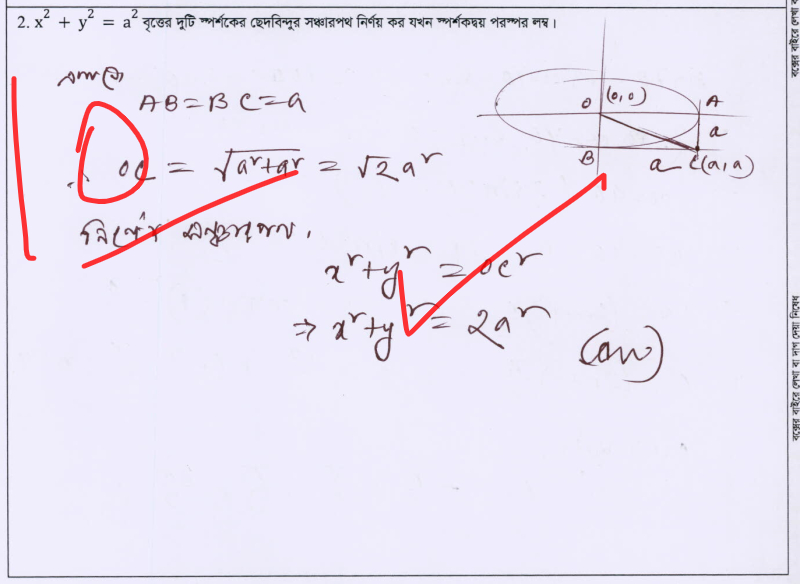 2. x² + y² = a² বৃত্তের দুটি স্পর্শকের ছেদবিন্দুর সঞ্চারপথ নির্ণয় কর যখন স্পর্শকদ্বয় পরস্পর লম্ব।
O (0,0) A
a
B a C(a, a)
AB = BC = a
∴ OC = √(a² + a²) = √2 a²
নির্ণেয় সঞ্চারপথ,
x² + y² = OC²
⇒ x² + y² = 2a² (Ans)
বক্সের বাইরে লেখা বা দাগ দেয়া নিষেধ
বক্সের বাইরে লেখা ব